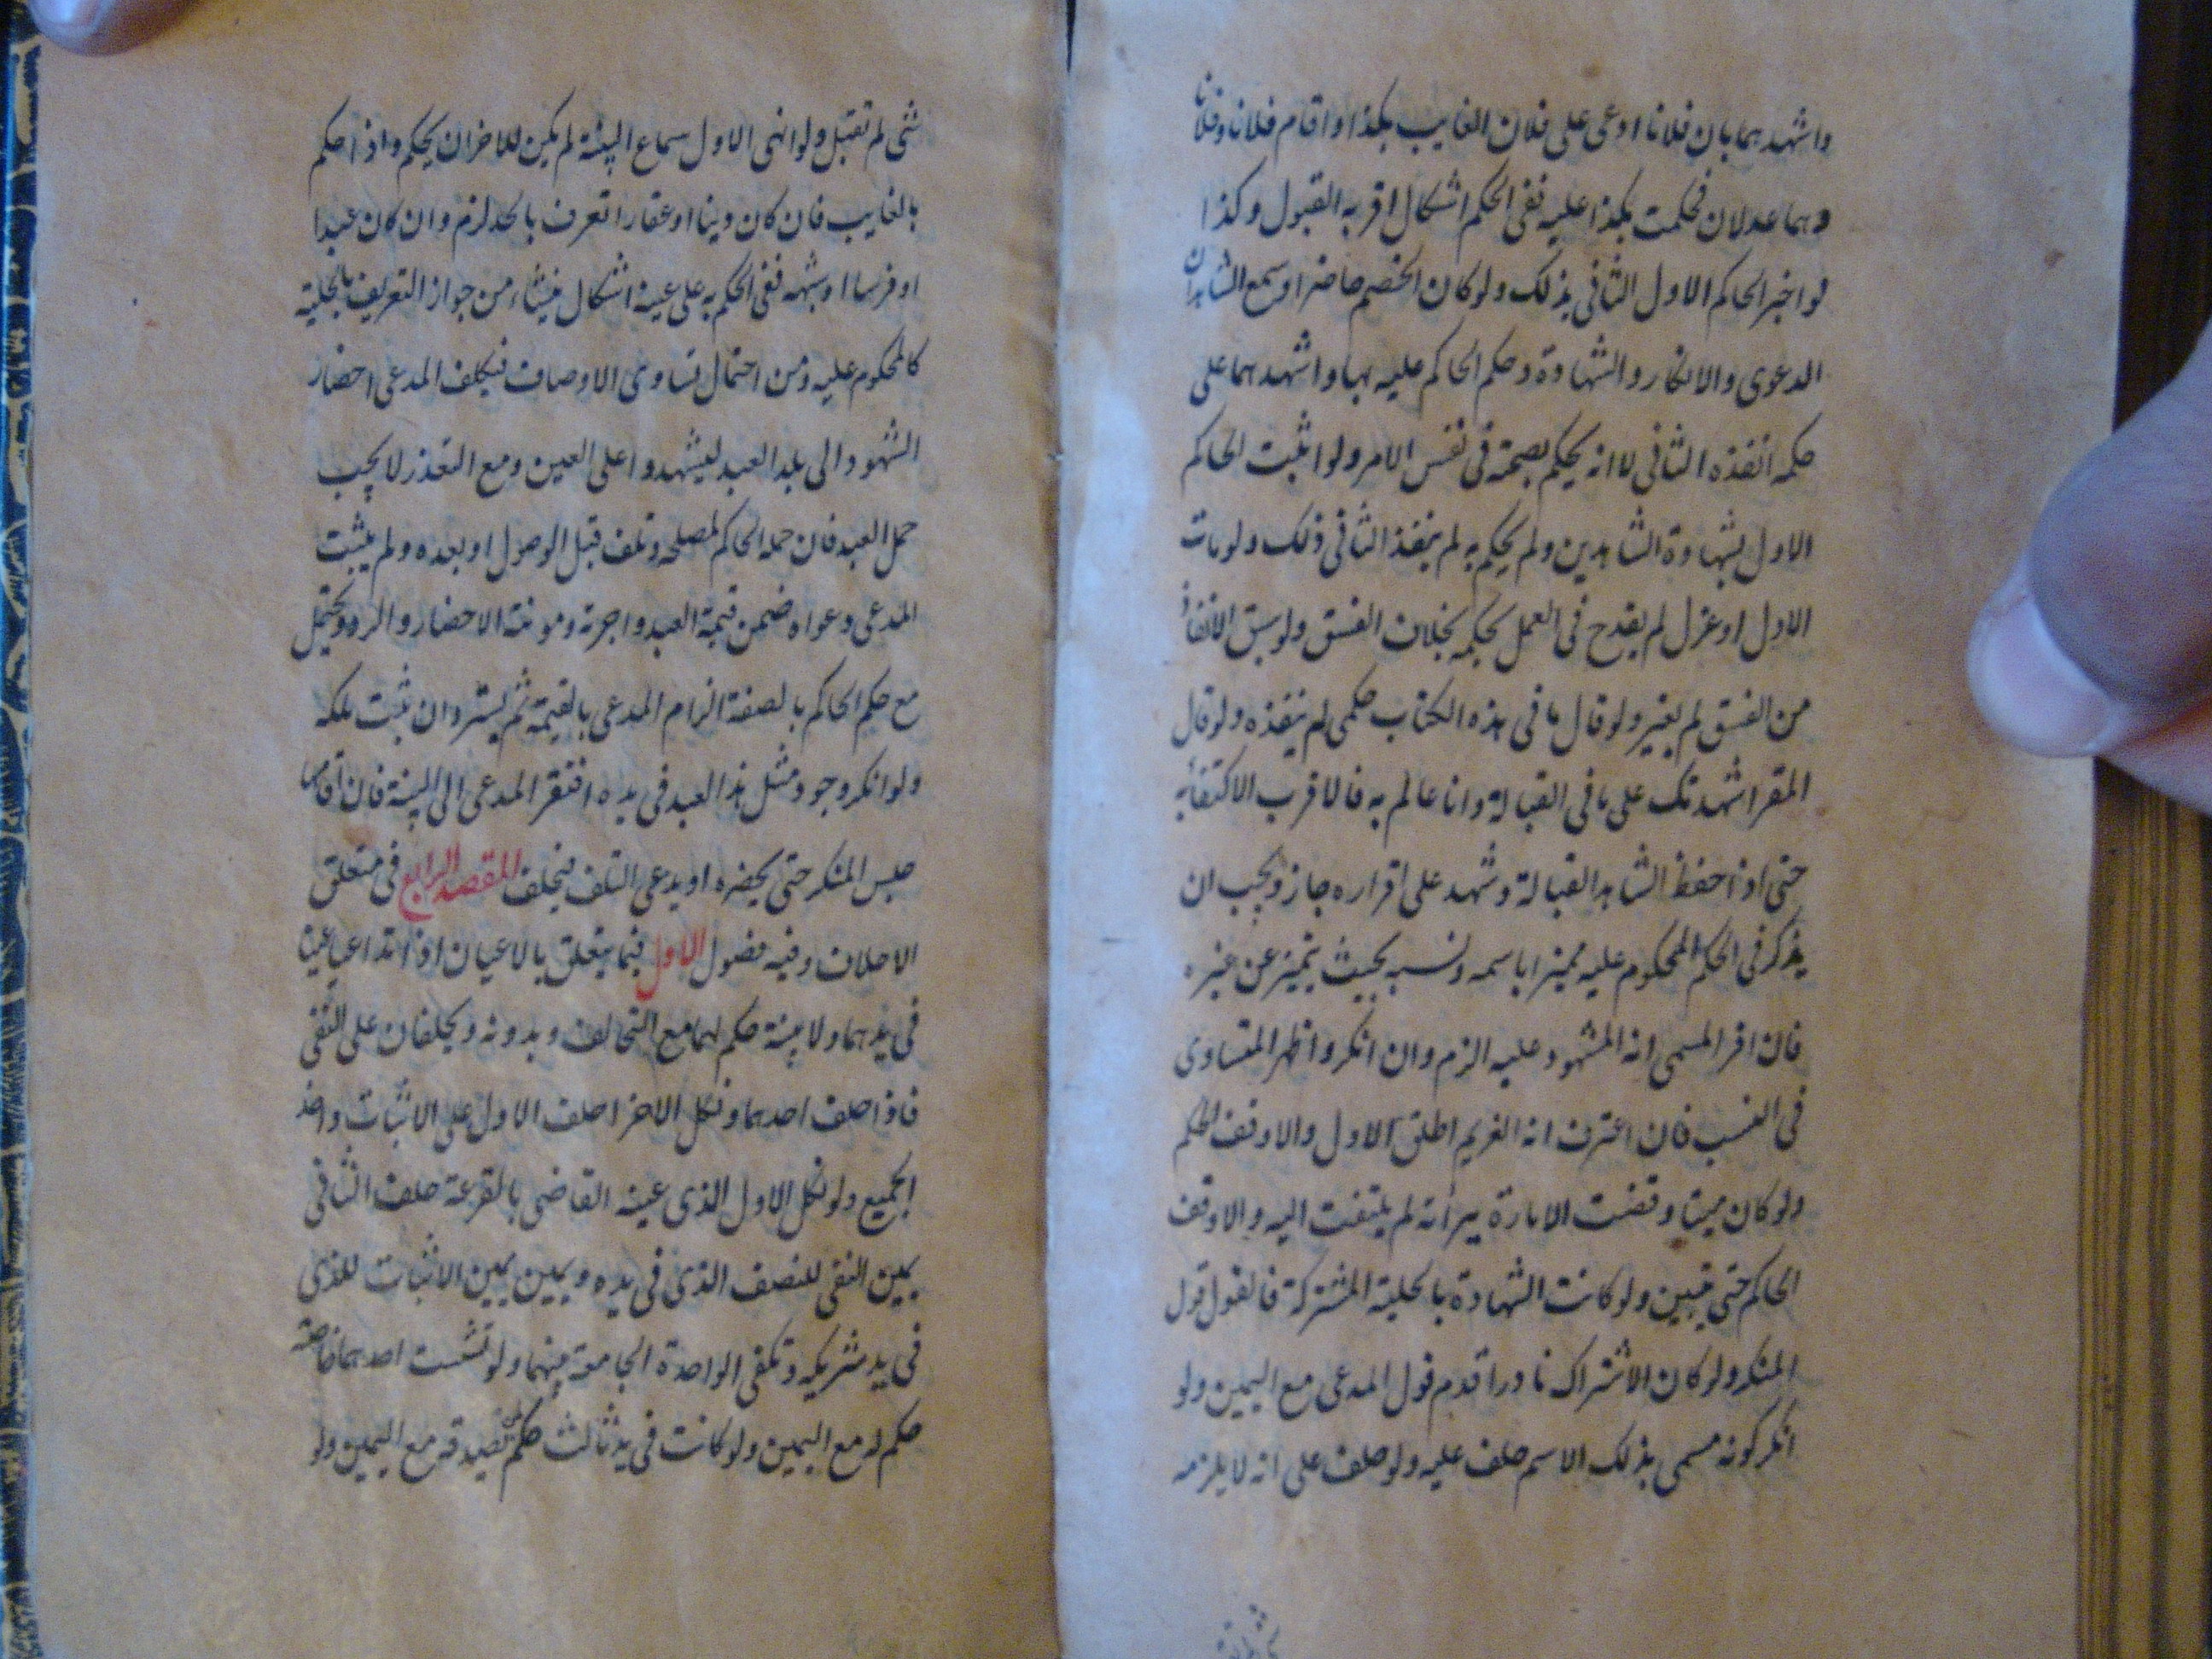 واشهدهما بان فلانا ادعى على فلان الغايب بكذا واقام فلانا وفلانا
وهما عدلان فحكمت بكذا عليه ففى الحكم اشكال اقربه القبول وكذا
لو اخبر الحاكم الاول الثانى بذلك ولو كان الخصم حاضرا وسمع الشاهدان
الدعوى والانكار والشهادة وحكم الحاكم عليه بها واشهدهما على
حكمه انفذه الثانى لا انه يحكم بصحته فى نفس الامر ولو اثبت الحاكم
الاول بشهادة الشاهدين ولم يحكم به لم ينفذ الثانى ذلك ولو مات
الاول او عزل لم يقدح فى العمل بحكمه بخلاف الفسق ولو سبق الانفاذ
من الفسق لم يغير ولو قال ما فى هذه الكتاب حكمى لم ينفذه ولو قال
المقر اشهدتك على ما فى القبالة وانا عالم به فالاقرب الاكتفاء به
حتى اذا حفظ الشاهد القبالة وشهد على اقراره جاز ويجب ان
يذكر فى الحكم المحكوم عليه مميزا باسمه ونسبه بحيث يتميز عن غيره
فان اقر المسمى انه المشهود عليه الزم وان انكر واظهر المتساوى
فى النسب فان اعترف انه الغريم اطلق الاول والا وقف الحكم
ولو كان ميتا وقضت الامارة ببرائته لم يلتفت اليه والا وقف
الحاكم حتى يتبين ولو كانت الشهادة بالحلية المشتركة فالقول قول
المنكر ولو كان الاشتراك نادرا قدم قول المدعى مع اليمين ولو
انكر كونه مسمى بذلك الاسم حلف عليه ولو حلف على انه لا يلزمه
شى لم تقبل ولو انهى الاول سماع البينة لم يكن للاخر ان يحكم واذا حكم
بالغايب فان كان دينا او عقارا تعرف بالحد لزم وان كان عبدا
او فرسا او شبهه ففى الحكم به على عينه اشكال ينشاء من جواز التعريف بالحلية
كالمحكوم عليه ومن احتمال تساوى الاوصاف فيكلف المدعى احضار
الشهود الى بلد العبد ليشهدوا على العين ومع التعذر لا يجب
حمل العبد فان حمله الحاكم لمصلحة وتلف قبل الوصول او بعده ولم يثبت
المدعى دعواه ضمن قيمة العبد واجرته ومونة الاحضار والرد ويحتمل
مع حكم الحاكم بالصفة الزام المدعى بالقيمة ثم يسترد ان ثبت ملكه
ولو انكر وجود مثل هذ العبد فى يده افتقر المدعى الى البينة فان اقامها
حبس المنكر حتى يحضره او يدعى التلف فيحلف المقصد الرابع فى متعلق
الاحلاف وفيه فصول الاول فيما يتعلق بالاعيان اذا تداعيا عينا
فى يدهما ولا بينة حكم لهما مع التحالف وبدونه ويحلفان على النفى
فاذا حلف احدهما ونكل الاخر احلف الاول على الاثبات واخذ
الجميع ولو نكل الاول الذى عينه القاضى بالقرعة حلف الثانى
يمين النفى للنصف الذى فى يده ويمين يمين الاثبات للذى
فى يد شريكه وتكفى الواحدة الجامعة بينهما ولو تشبث احدهما خاصة
حكم له مع اليمين ولو كانت فى يد ثالث حكم لمن تصيدقه مع اليمين ولو